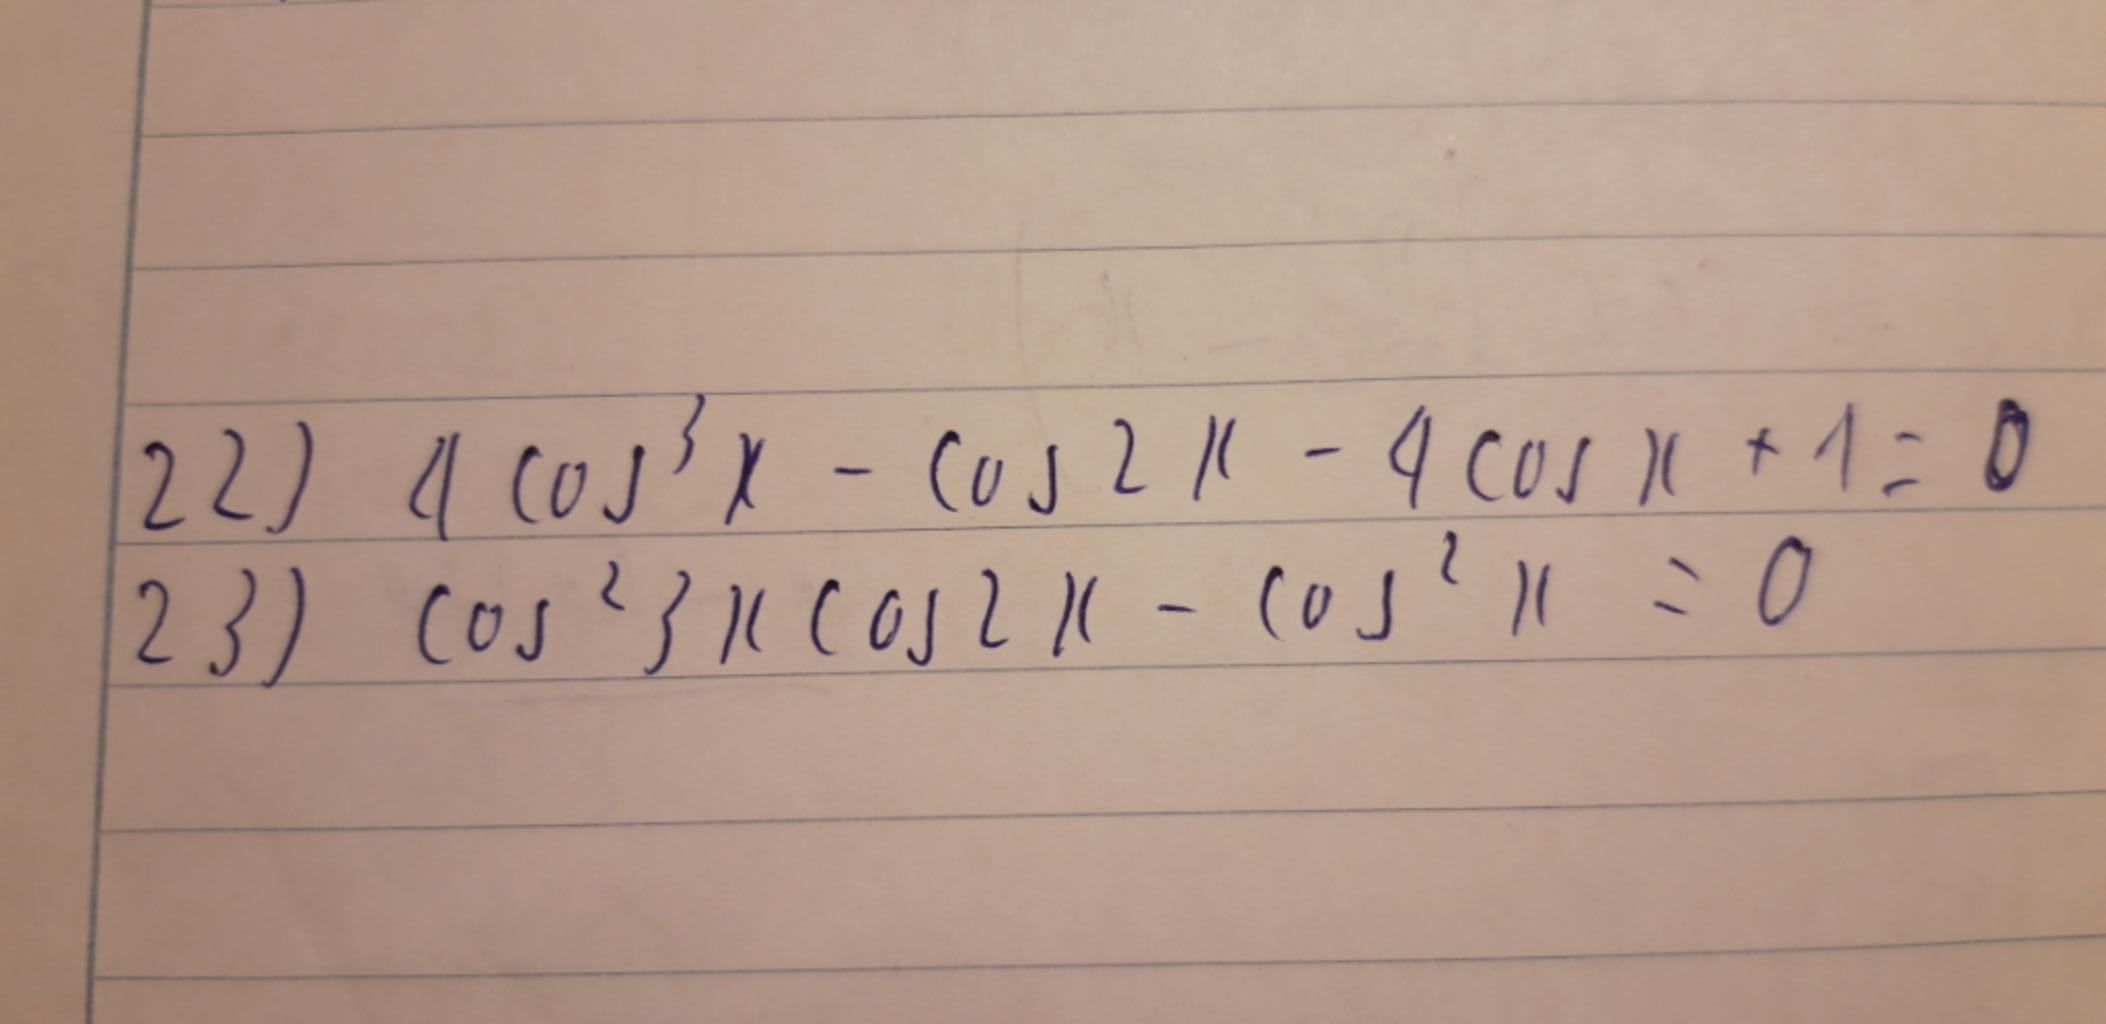 22) 4 cos³x - cos 2x - 4 cos x + 1 = 0
23) cos² 3x cos 2x - cos² x = 0